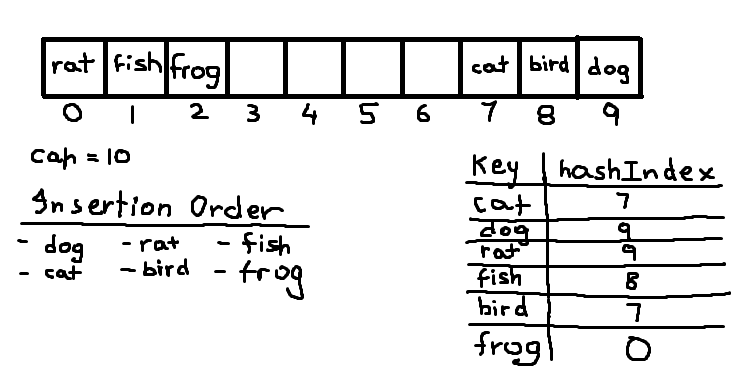 rat fish frog cat bird dog
0 1 2 3 4 5 6 7 8 9
cap = 10
Insertion Order
- dog - rat - fish
- cat - bird - frog
Key hashIndex
cat 7
dog 9
rat 9
fish 8
bird 7
frog 0